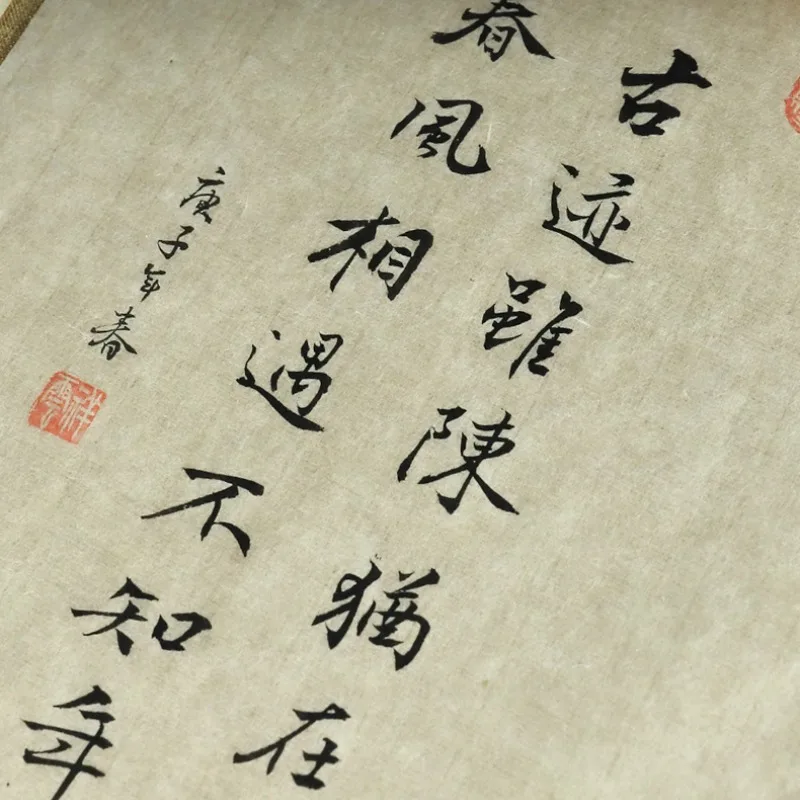 古迹雖陳猶在
春風相遇不知年
庚子年春